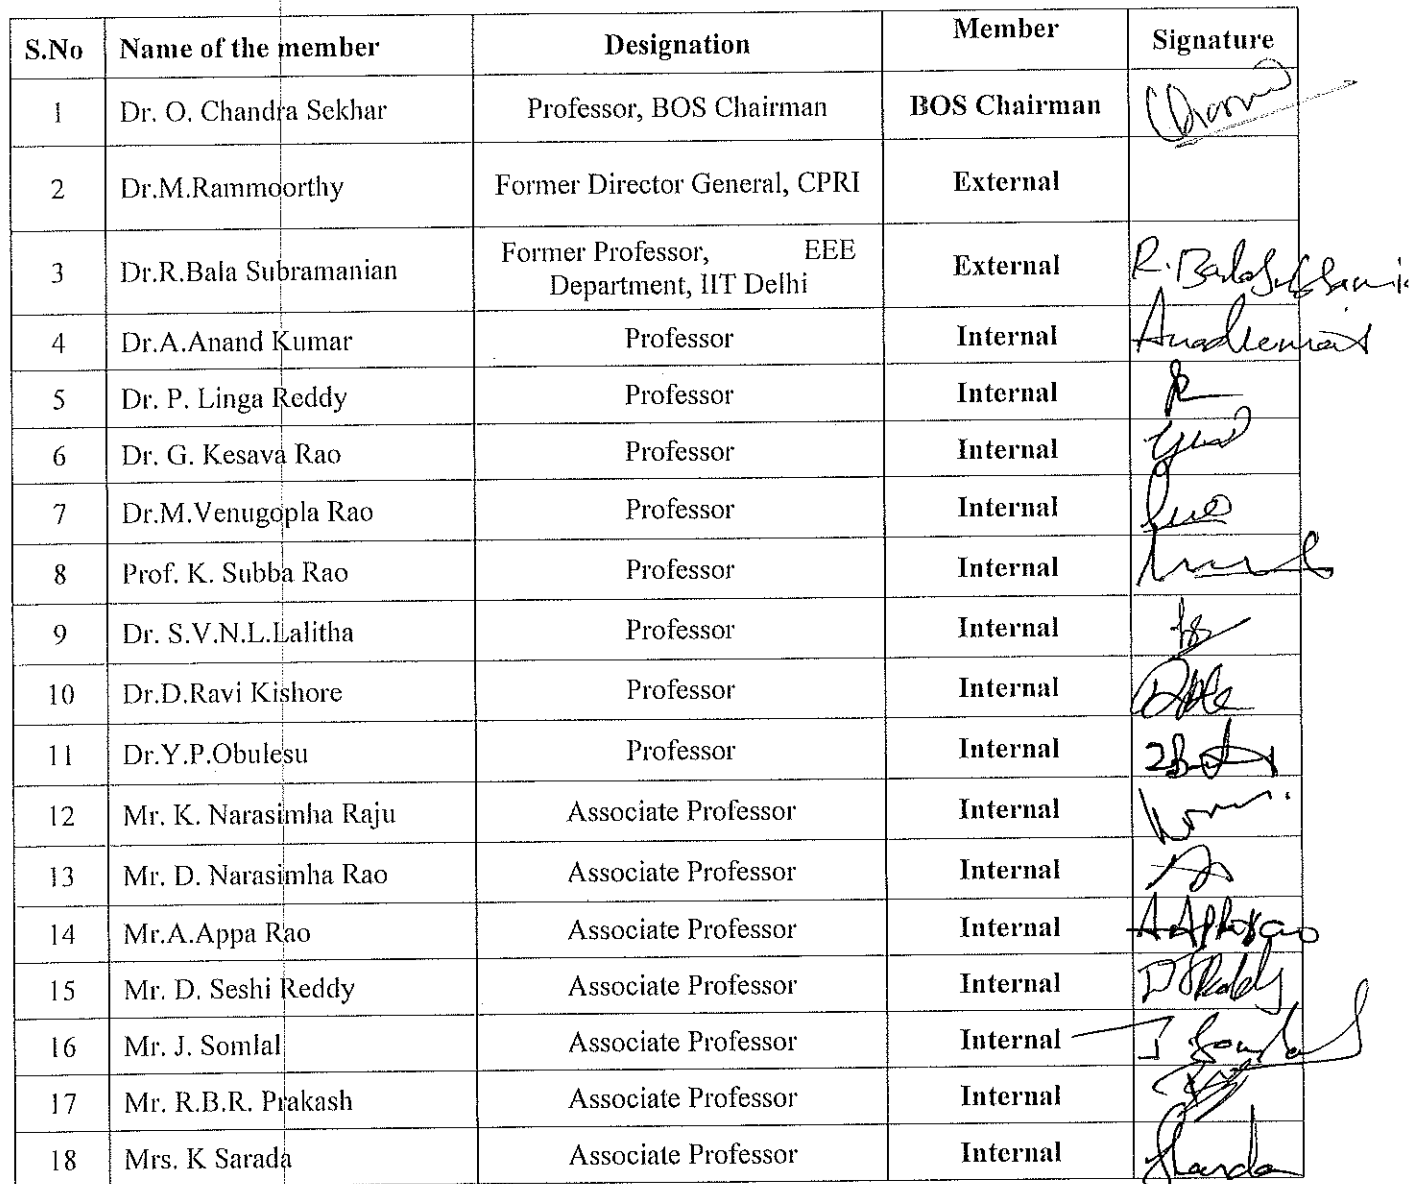 S.No Name of the member Designation Member Signature
1 Dr. O. Chandra Sekhar Professor, BOS Chairman BOS Chairman
2 Dr.M.Rammoorthy Former Director General, CPRI External
3 Dr.R.Bala Subramanian Former Professor, EEE External
Department, IIT Delhi
4 Dr.A.Anand Kumar Professor Internal
5 Dr. P. Linga Reddy Professor Internal
6 Dr. G. Kesava Rao Professor Internal
7 Dr.M.Venugopla Rao Professor Internal
8 Prof. K. Subba Rao Professor Internal
9 Dr. S.V.N.L.Lalitha Professor Internal
10 Dr.D.Ravi Kishore Professor Internal
11 Dr.Y.P.Obulesu Professor Internal
12 Mr. K. Narasimha Raju Associate Professor Internal
13 Mr. D. Narasimha Rao Associate Professor Internal
14 Mr.A.Appa Rao Associate Professor Internal
15 Mr. D. Seshi Reddy Associate Professor Internal
16 Mr. J. Somlal Associate Professor Internal
17 Mr. R.B.R. Prakash Associate Professor Internal
18 Mrs. K Sarada Associate Professor Internal